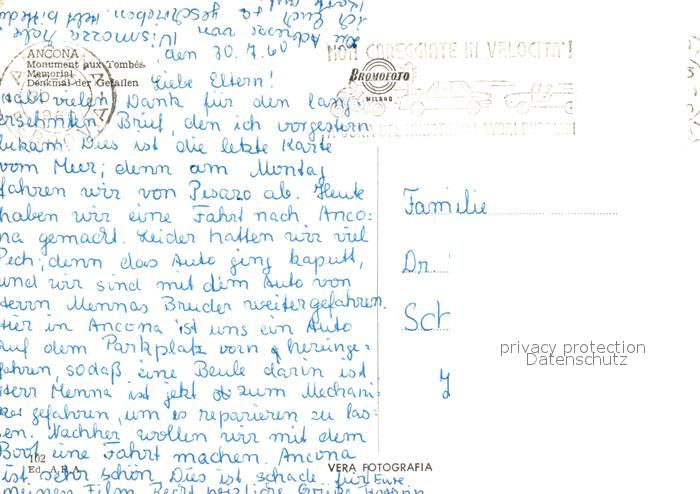 ANCONA
Monument aux Tombés
Memorial
Denkmal der Gefallen
den 30.7.60
NON GAREGGIATE IN VELOCITA'!
BROMOFOTO
MILANO
Liebe Eltern!
Habt vielen Dank für den lang
ersehnten Brief, den ich vorgestern
bekam! Dies ist die letzte Karte
vom Meer; denn am Montag
fahren wir von Pesaro ab. Heute
haben wir eine Fahrt nach Anco:
na gemacht. Leider hatten wir viel
Pech; denn das Auto ging kaputt,
und wir sind mit dem Auto von
Herrn Mennas Bruder weitergefahren.
Hier in Ancona ist uns ein Auto
auf dem Parkplatz vorn hereinge:
fahren, sodaß eine Beule darin ist
Herr Menna ist jetzt zum Mechani:
ker gefahren, um es reparieren zu las:
sen. Nachher wollen wir mit dem
Boot eine Fahrt machen. Ancona
ist sehr schön. Dies ist schade für Eure
meinen Film. Recht herzliche Grüße
Familie
Dr.
Sch
privacy protection
Datenschutz
102
Ed. A.R.A.
VERA FOTOGRAFIA